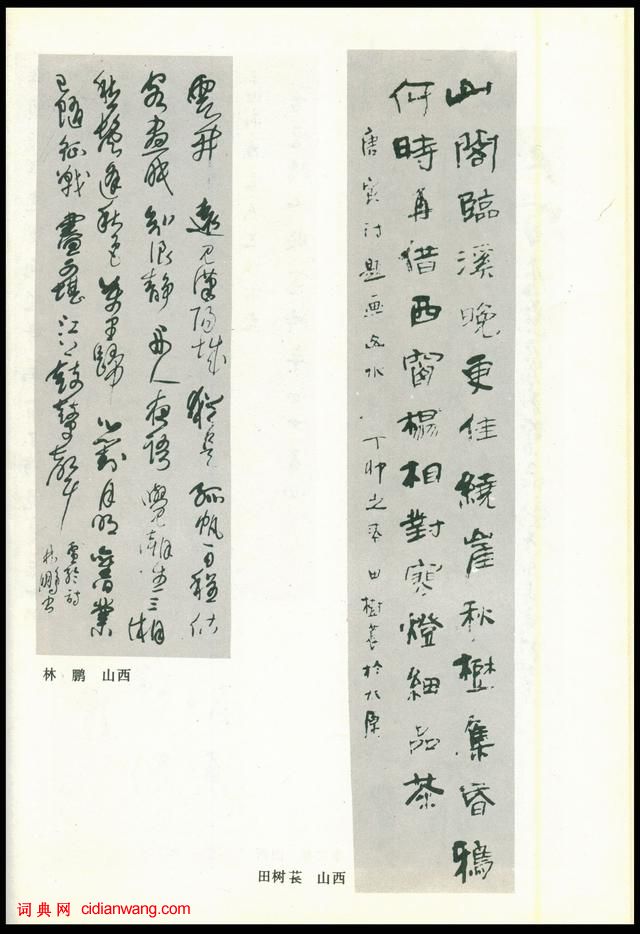 山閣臨溪晚更佳繞崖秋樹集昏鴉
何時再借西窗榻相對寒燈細品茶
唐寅詩題画山水 丁卯之春田樹萇於太原
田树苌 山西
雲开遠見漢陽城猶是孤帆一日程估
客晝眠知浪靜舟人夜語覺潮生三湘
愁鬢逢秋色萬里歸心對月明舊業
已隨征戰盡更堪江上鼓鼙聲
盧綸詩
林鵬書
林 鹏 山西
词典网 cidianwang.com